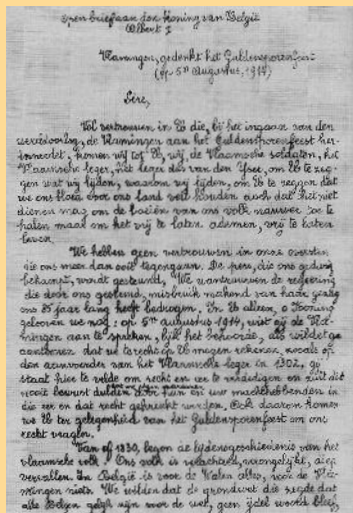 Open brief aan den Koning van België
Albert I
Vlamingen, gedenkt het Guldensporenfeest
(op 5n Augustus, 1914)
Sire,
Vol vertrouwen in U die, bij het ingaan van den
wereldoorlog, de Vlamingen aan het Guldensporenfeest her-
inneerdet, komen wij tot U, wij, de Vlaamsche soldaten, het
Vlaamsche leger, het leger der van den Yser, om U te zeg-
gen wat wij lijden, waarom wij lijden, om U te zeggen dat
we ons bloed voor ons land veil houden doch dat het niet
dienen mag om de boeien van ons volk nauwer toe te
halen maar om het vrij te laten ademen, vrij te laten
leven.
We hebben geen vertrouwen in onze oversten
die ons meer dan ooit tegengaan. De pers, die ons geding
bekampt, wordt gesteund. We wantrouwen de regeering
die door ons gesteund, misbruik makend van haar gezag
ons 85 jaar lang heeft bedrogen. In U alleen, o Koning
gelooven we nog: op 5n augustus 1914, wist gij de Vla-
mingen aan te spreken, lijk het behoorde, als wildet ge
aantoonen dat we terecht op U mogen rekenen, zooals op
den aanvoerder van het Vlaamsche leger in 1302. Gij
staat hier te velde om recht en eer te verdedigen en zult dit
nooit bewust dulden dat hun en uw machthebbenden in
die eer en dat recht gekrenkt worden. Ook daarom komen
we U ter gelegenheid van het Guldensporenfeest om ons
recht vragen.
Van af 1830, begon de lijdensgeschiedenis van het
vlaamsche volk. Ons volk is verachterd, verongelijkt, diep
vervallen. In België is voor de Walen alles, voor de Vla-
mingen niets. We wilden dat de grondwet die zegde dat
alle Belgen gelijk zijn voor de wet, geen ijdel woord bleef,